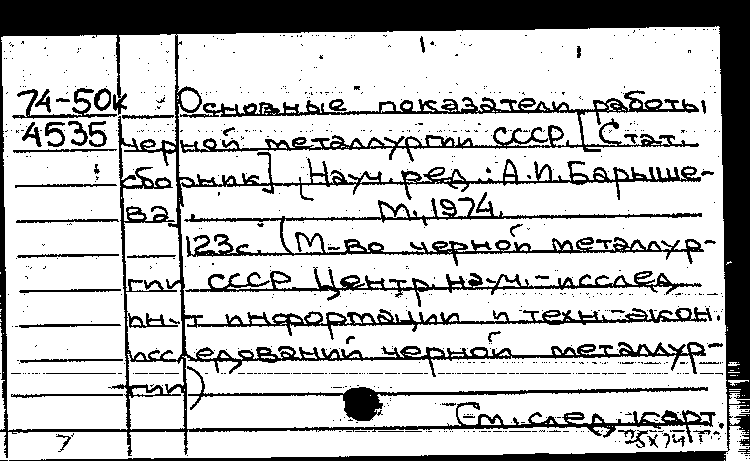 74-50к Основные показатели работы
4535 черной металлургии СССР. [Стат.
сборник] [Науч. ред.: А.И. Барыше-
ва]. М., 1974.
123с. (М-во черной металлур-
гии СССР Центр. науч.-исслед.
ин-т информации и техн.-экон.
исследований черной металлур-
гии)
См. след. карт.
7 25X74